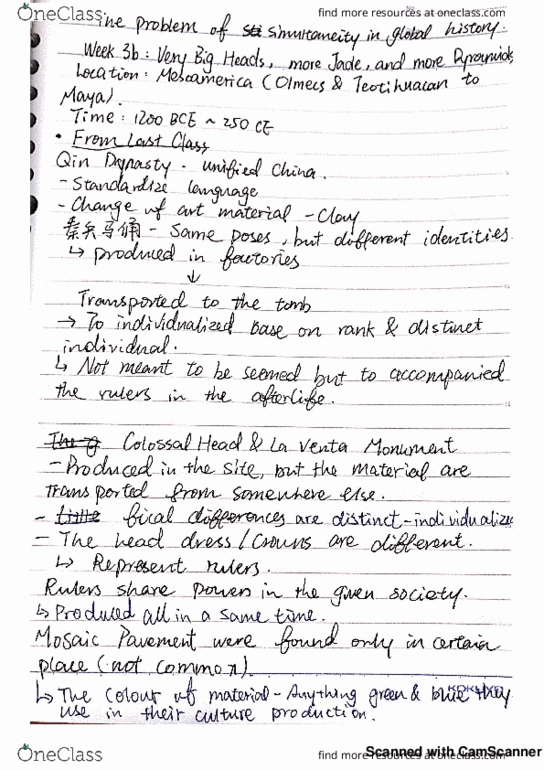 OneClass
find more resources at oneclass.com
The problem of simultaneity in global history.
Week 3b : Very Big Heads, more Jade, and more Pyramids
Location : Mesoamerica (Olmecs & Teotihuacan to
Maya).
Time : 1200 BCE ~ 250 CE
• From Last Class
Qin Dynasty - unified China.
- Standardize language
- Change of art material - Clay
秦兵马俑 - Same poses, but different identities.
↳ produced in factories
↓
Transported to the tomb
→ To individualized base on rank & distinct
individual.
↳ Not meant to be seemed but to accompanied
the rulers in the afterlife.
Colossal Head & La Venta Monument
- Produced in the site, but the material are
Transported from somewhere else.
- fical differences are distinct - individualize
- The head dress / Crowns are different.
↳ Represent rulers.
Rulers share power in the given society.
↳ Produced all in a same time.
Mosaic Pavement were found only in certain
place (not common).
↳ The colour of material - Anything green & blue they
use in their culture production.
OneClass
find more
Scanned with CamScanner